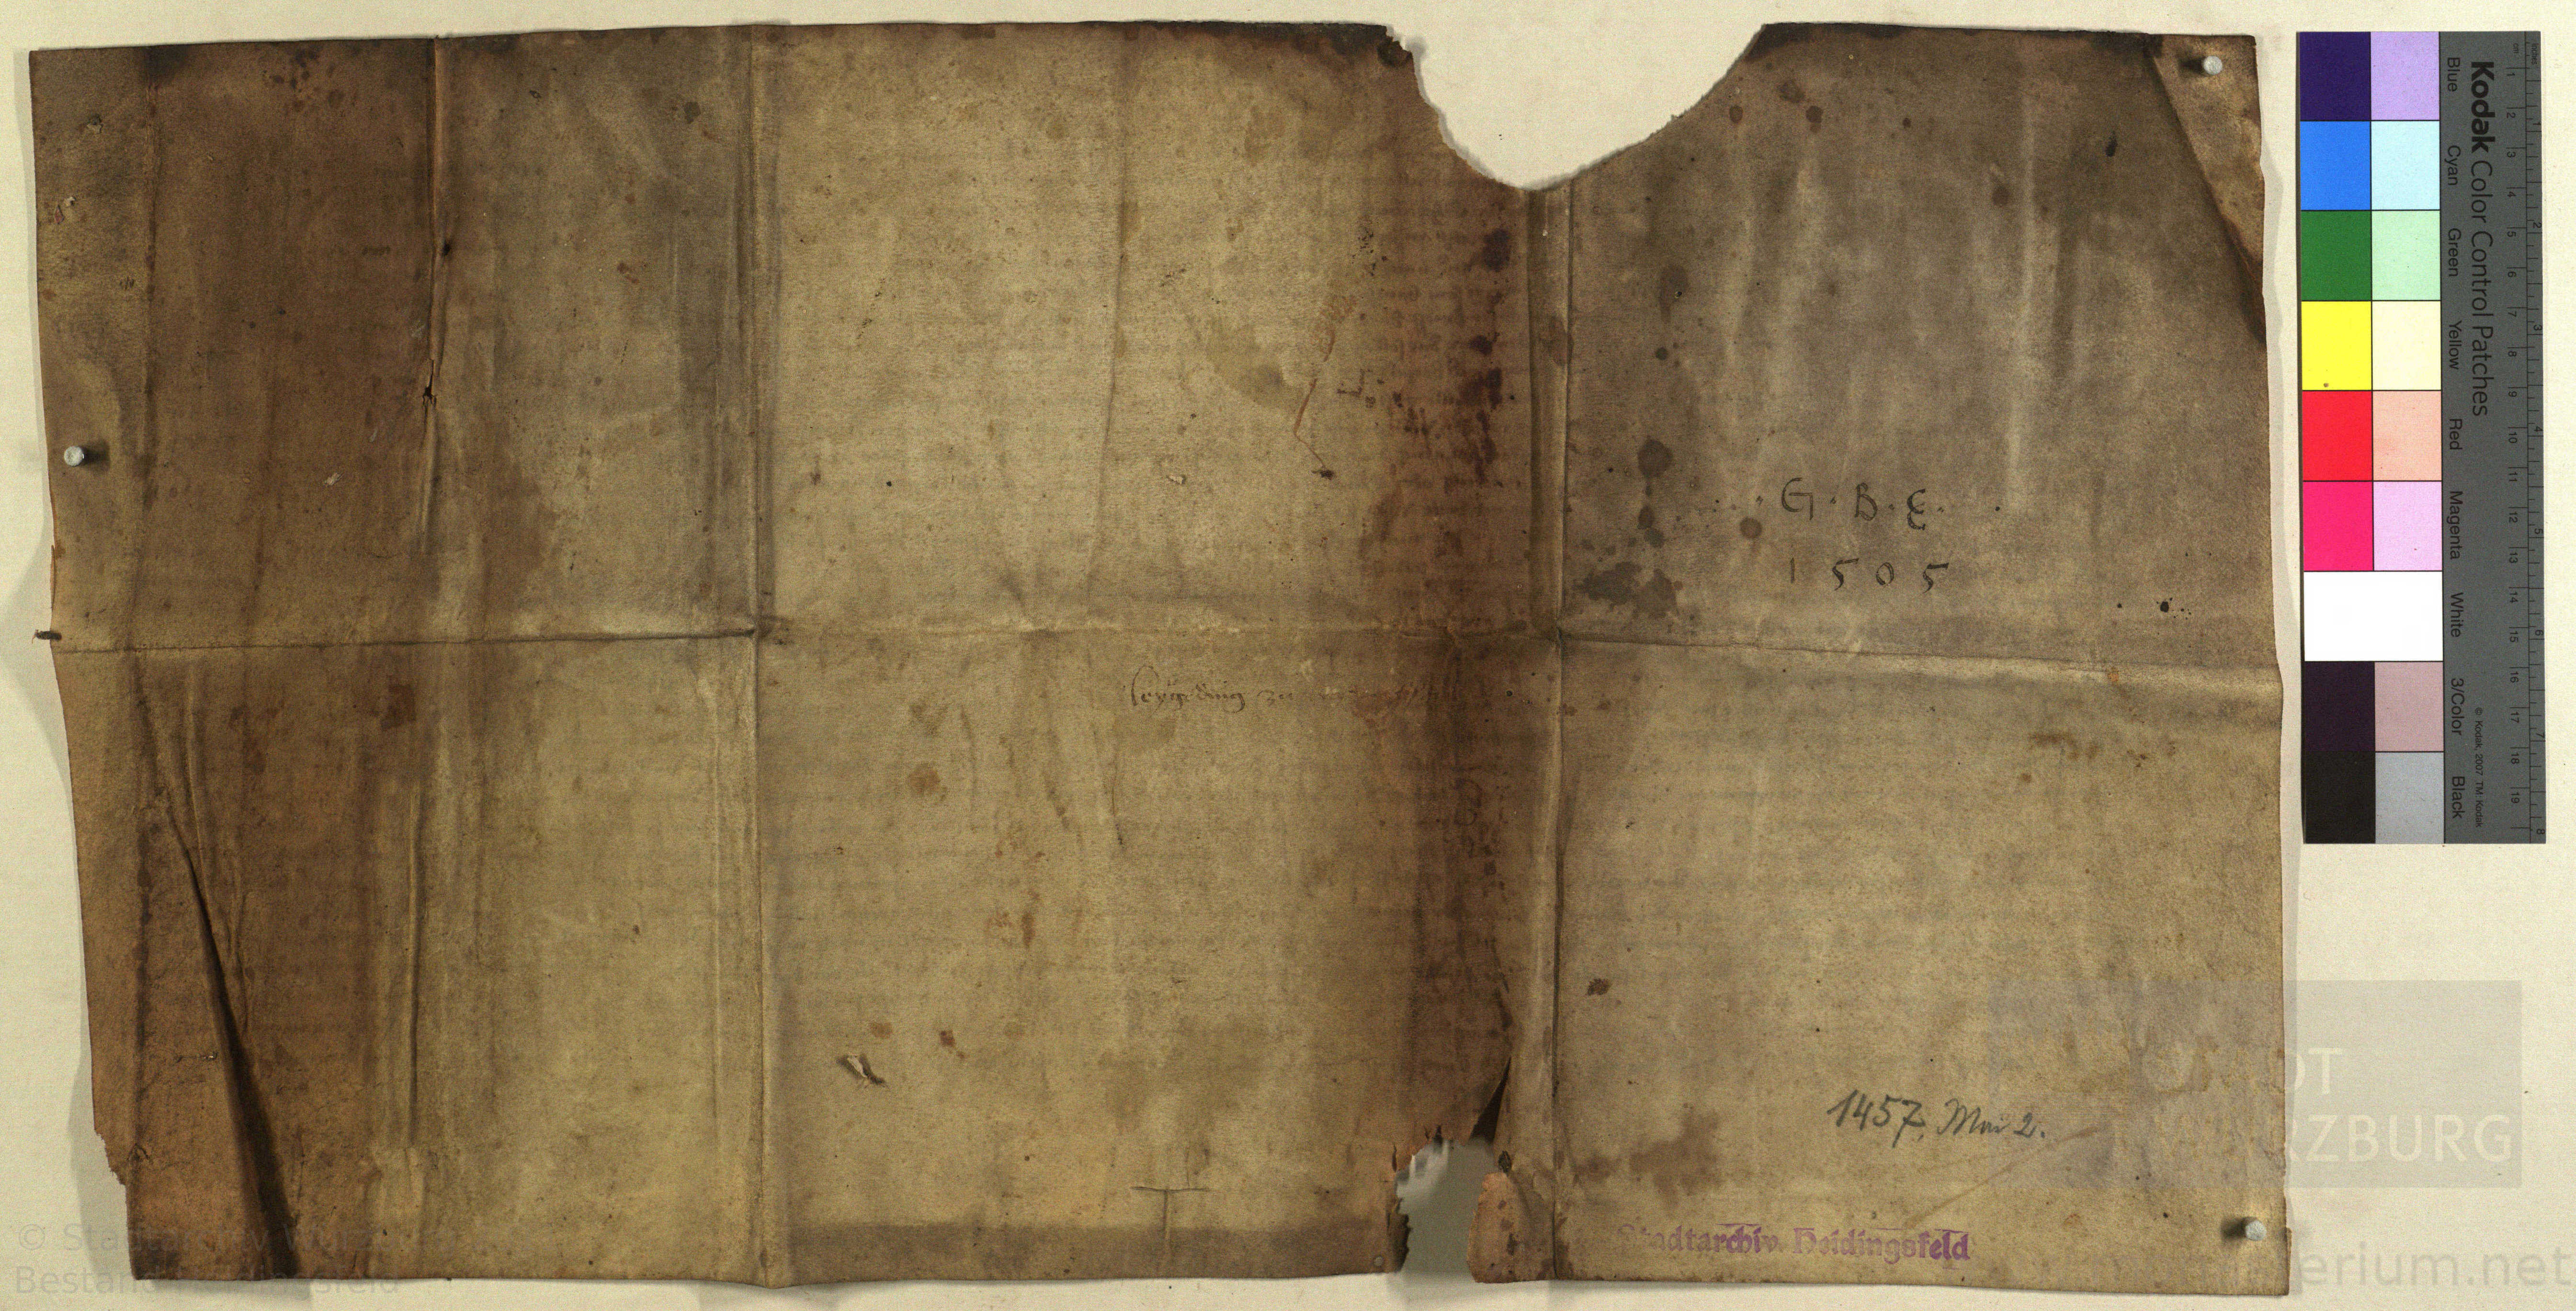 G. B. E.
1505
zu
1457, Mai 2.
Stadtarchiv Heidingsfeld
Kodak Color Control Patches
Blue Cyan Green Yellow Red Magenta White 3/Color Black
© Kodak, 2007 TM: Kodak
cm 1 2 3 4 5 6 7 8 9 10 11 12 13 14 15 16 17 18 19
1 2 3 4 5 6 7 8
WÜRZBURG
© Stadtarchiv Würzburg
Bestand Heidingsfeld